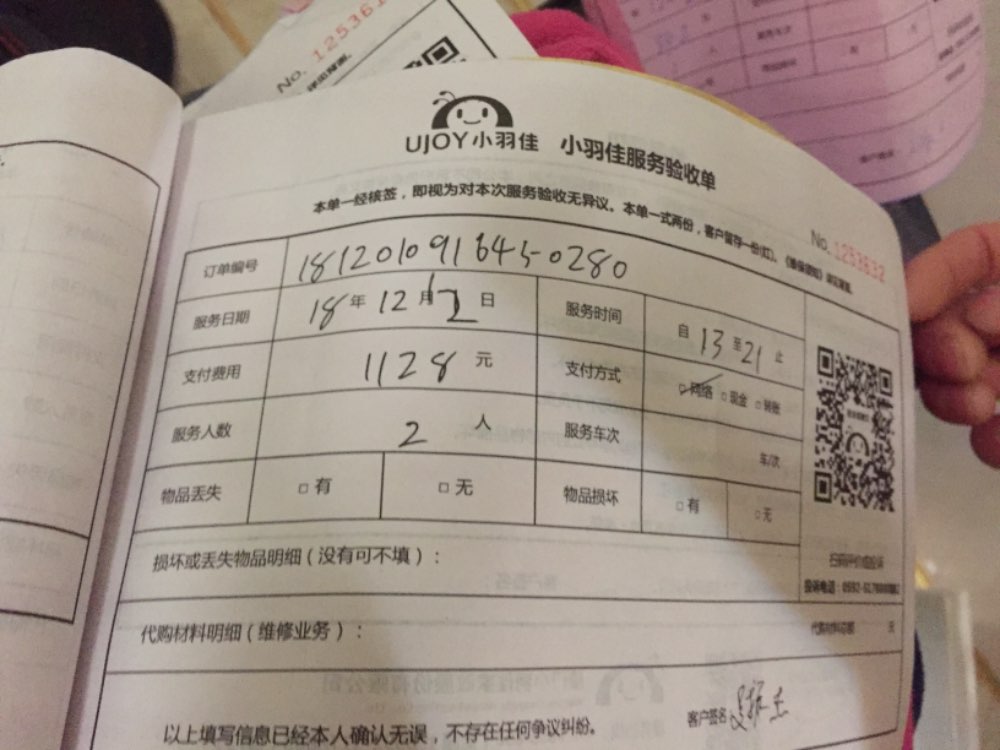 No. 125361
UJOY小羽佳 小羽佳服务验收单
本单一经核签，即视为对本次服务验收无异议。本单一式两份，客户留存一份(红)。
No. 1253632
订单编号 181201091645-0280
服务日期 18年12月2日 服务时间 自13至21止
支付费用 1128元 支付方式 □网络 □现金 □转账
服务人数 2人 服务车次 车/次
物品丢失 □有 □无 物品损坏 □有 □无
损坏或丢失物品明细（没有可不填）：
代购材料明细（维修业务）： 元
以上填写信息已经本人确认无误，不存在任何争议纠纷。 客户签名